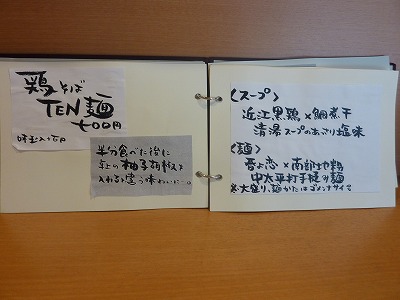 鶏そば
TEN麺
700円
半分食べた後に
卓上の柚子胡椒を
入れると違う味わいに…。
〈スープ〉
近江黒鶏×鯛煮干
清湯スープのあっさり塩味
〈麺〉
春よ恋×南部地粉
中太平打手揉み麺
※大盛り、麺かたはゴメンナサイ